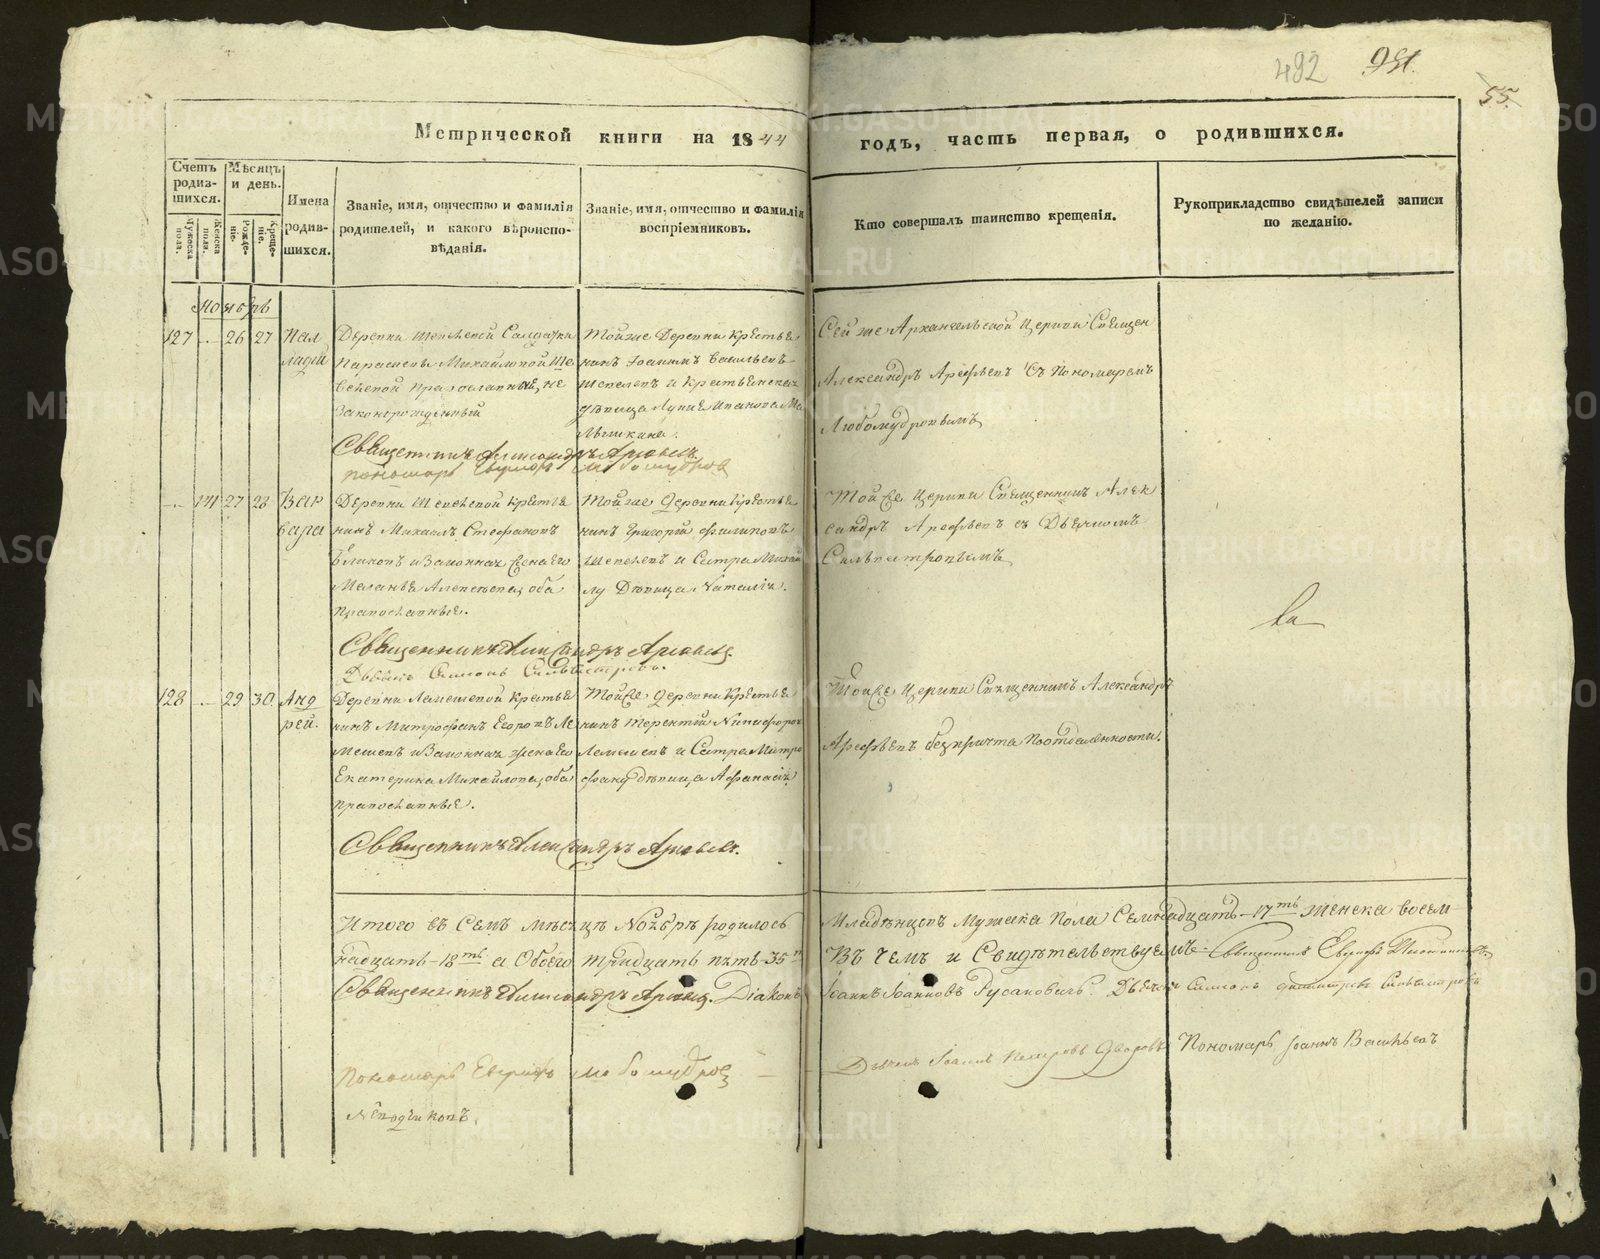 492 951.
55.
Метрической книги на 1844 годъ, часть первая, о родившихся.
Счетъ родив-шихся.
Мужеска пола.
Женска пола.
Мѣсяцъ и день.
Рожде-ніе.
Креще-ніе.
Имена родив-шихся.
Званіе, имя, отчество и фамилія родителей, и какого вѣроиспо-вѣданія.
Званіе, имя, отчество и фамилія воспріемниковъ.
Кто совершалъ таинство крещенія.
Рукоприкладство свидѣтелей записи по желанію.
Ноябрь
127 26 27
Пал
ладій
Деревни Шепелевой Солдатки
Параскевы Михайловой Ше
белевой православный, не
законорожденный
Тойже Деревни Крестья
нинъ Іоаннъ Васильевъ
Шепелевъ и Крестьянская
дѣвица Иванова Ма
Сей же Архангельской Церкви Священ
Александръ Арефьевъ съ Пономаремъ
Любомудровымъ
Священникъ Александръ Арефьевъ
пономарь Любомудров
141 27 28
Вар
вара
Деревни Шепелевой Крестья
нинъ Михаилъ Стефановъ
и Законная жена его
Маланья Алексѣева, оба
православные.
Тойже Деревни Крестья
нинъ Григорій Филиповъ
Шепелевъ и Сестра Михаи
лу Дѣвица Наталія.
Тойже Церкви Священникъ Алек
сандръ Арефьевъ съ Дьячкомъ
Сильвестровымъ
Священникъ Александръ Арефьевъ.
128 29 30
Анд
рей.
Деревни Лемешевой Крестья
нинъ Митрофанъ Егоровъ Ле
мешевъ и Законная жена его
Екатерина Михайлова, оба
православные.
Тойже Деревни Крестья
нинъ Терентій Никифоров
Лемешевъ и Сестра Митро
фану дѣвица Афанасія
Тойже Церкви Священникъ Александръ
Арефьевъ безъ причта по отдаленности.
Священникъ Александръ Арефьевъ.
Итого въ Семъ мѣсяцѣ Ноябрѣ родилось Младѣнцовъ Мужеска Пола Семнадцать - 17ть Женска восем
надцать - 18ть а Обоего тридцать пять - 35ть Въ чемъ и Свидѣтельствуемъ - Священникъ
Священникъ Александръ Арефьевъ. Діаконъ Іоаннъ Іоанновъ Русановичъ. Дьячек
Пономарь Любомудров Дьячекъ Іоаннъ Петровъ Пономарь Іоаннъ Васильевъ
METRIKI.GASO-URAL.RU